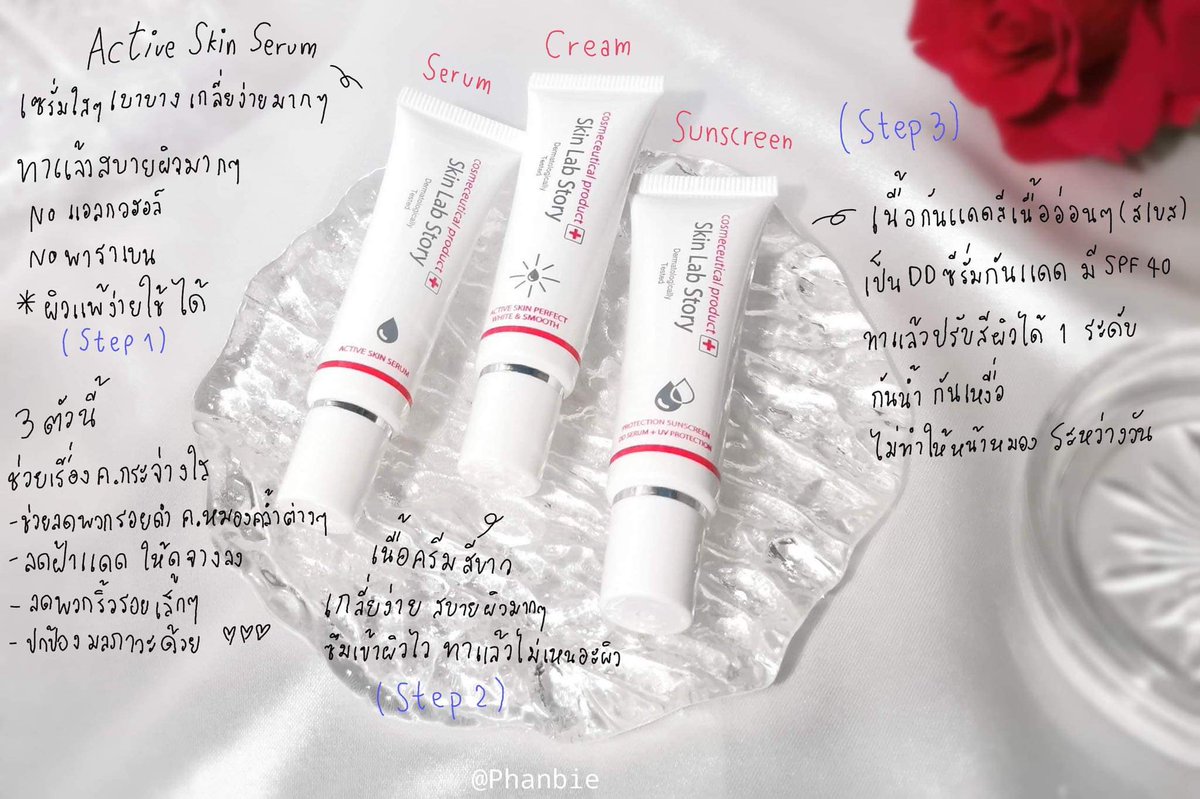 Active Skin Serum
เซรั่มใสๆ เบาบาง เกลี่ยง่ายมากๆ
ทาแล้วสบายผิวมากๆ
No แอลกอฮอล์
No พาราเบน
* ผิวแพ้ง่ายใช้ได้
(Step 1)
3 ตัวนี้
ช่วยเรื่อง ค.กระจ่างใส
- ช่วยลดพวกรอยดำ ค.หมองคล้ำต่างๆ
- ลดฝ้าแดด ให้ดูจางลง
- ลดพวกริ้วรอยเล็กๆ
- ปกป้อง มลภาวะด้วย ♡♡♡
Serum
cosmeceutical product
Skin Lab Story
Dermatologically
Tested
ACTIVE SKIN SERUM
Cream
cosmeceutical product
Skin Lab Story
Dermatologically
Tested
ACTIVE SKIN PERFECT
WHITE & SMOOTH
เนื้อครีมสีขาว
เกลี่ยง่าย สบายผิวมากๆ
ซึมเข้าผิวไว ทาแล้วไม่เหนอะผิว
(Step 2)
Sunscreen
cosmeceutical product
Skin Lab Story
Dermatologically
Tested
PROTECTION SUNSCREEN
DD SERUM + UV PROTECTION
(Step 3)
เนื้อกันแดดสีเนื้ออ่อนๆ (สีเบส)
เป็น DD ซีรั่มกันแดด มี SPF 40
ทาแล้วปรับสีผิวได้ 1 ระดับ
กันน้ำ กันเหงื่อ
ไม่ทำให้หน้าหมอง ระหว่างวัน
@Phanbie